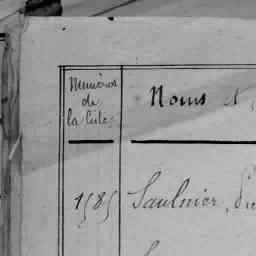 Numéros
de
la liste
Noms et
1585 Saulnier,